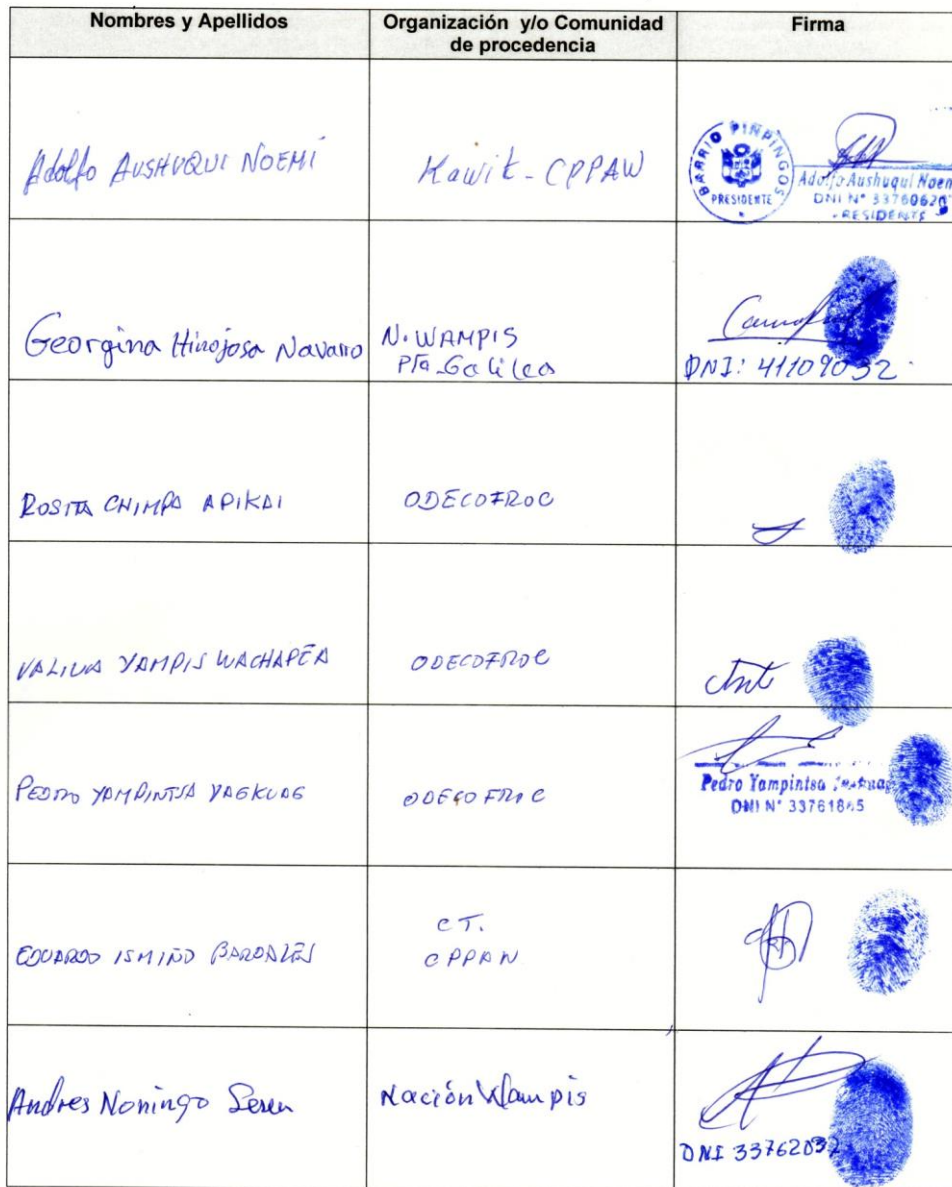 Nombres y Apellidos
Organización y/o Comunidad de procedencia
Firma
Adolfo AUSHUQUI NOEMÍ
Kawit - CPPAW
BARRIO PINPINGOS
PRESIDENTE
Adolfo Aushuqui Noem
DNI N° 33760620
PRESIDENTE
Georgina Hinojosa Navarro
N. WAMPIS
Pta. Galilea
DNI: 41109032
ROSITA CHIMPA APIKAI
ODECOFROC
VALIUA YAMPIS WACHAPEA
ODECOFROC
PEDRO YAMPINTSA YAGKUAG
ODECOFROC
Pedro Yampintsa
DNI N° 33761865
EDUARDO ISMIÑO BARDALES
CT.
CPPAN
Andres Noningo Sesen
Nación Wampis
DNI 33762037